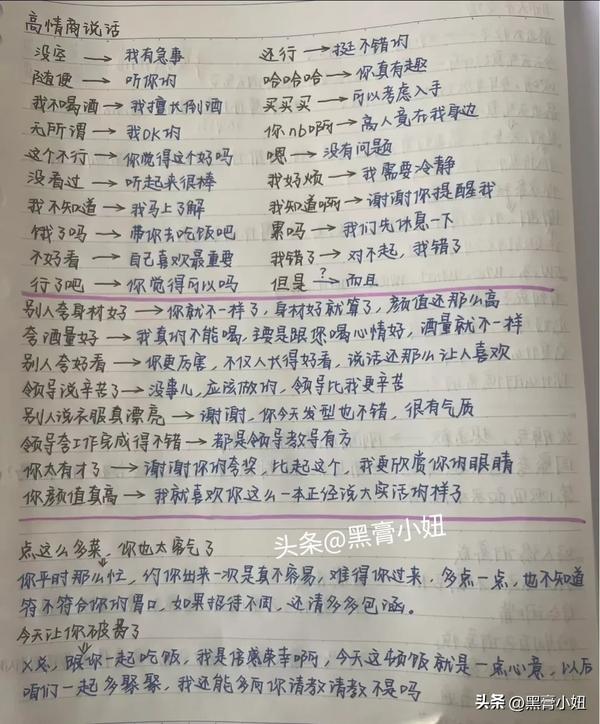 高情商说话
没空 → 我有急事 还行 → 挺不错的
随便 → 听你的 哈哈哈 → 你真有趣
我不喝酒 → 我擅长倒酒 买买买 → 可以考虑入手
无所谓 → 我OK的 你nb啊 → 高人竟在我身边
这个不行 → 你觉得这个好吗 嗯 → 没有问题
没看过 → 听起来很棒 我好烦 → 我需要冷静
我不知道 → 我马上了解 我知道啊 → 谢谢你提醒我
饿了吗 → 带你去吃饭吧 累吗 → 我们先休息一下
不好看 → 自己喜欢最重要 我错了 → 对不起,我错了
行了吧 → 你觉得可以吗 但是 ? → 而且
别人夸身材好 → 你就不一样了,身材好就算了,颜值还那么高
夸酒量好 → 我真的不能喝,主要是跟您喝心情好,酒量就不一样
别人夸好看 → 你更厉害,不仅人长得好看,说话还那么让人喜欢
领导说辛苦了 → 没事儿,应该做的,领导比我更辛苦
别人说衣服真漂亮 → 谢谢,你今天发型也不错,很有气质
领导夸工作完成得不错 → 都是领导教导有方
你太有才了 → 谢谢你的夸奖,比起这个,我更欣赏你的眼睛
你颜值真高 → 我就喜欢你这么一本正经说大实话的样子
头条@黑膏小妞
点这么多菜,你也太客气了
你平时那么忙,约你出来一次是真不容易,难得你过来,多点一点,也不知道
符不符合你的胃口,如果招待不周,还请多多包涵。
今天让你破费了
X总,跟你一起吃饭,我是倍感荣幸啊,今天这顿饭就是一点心意,以后
咱们一起多聚聚,我还能多向你请教请教不是吗
头条@黑膏小妞